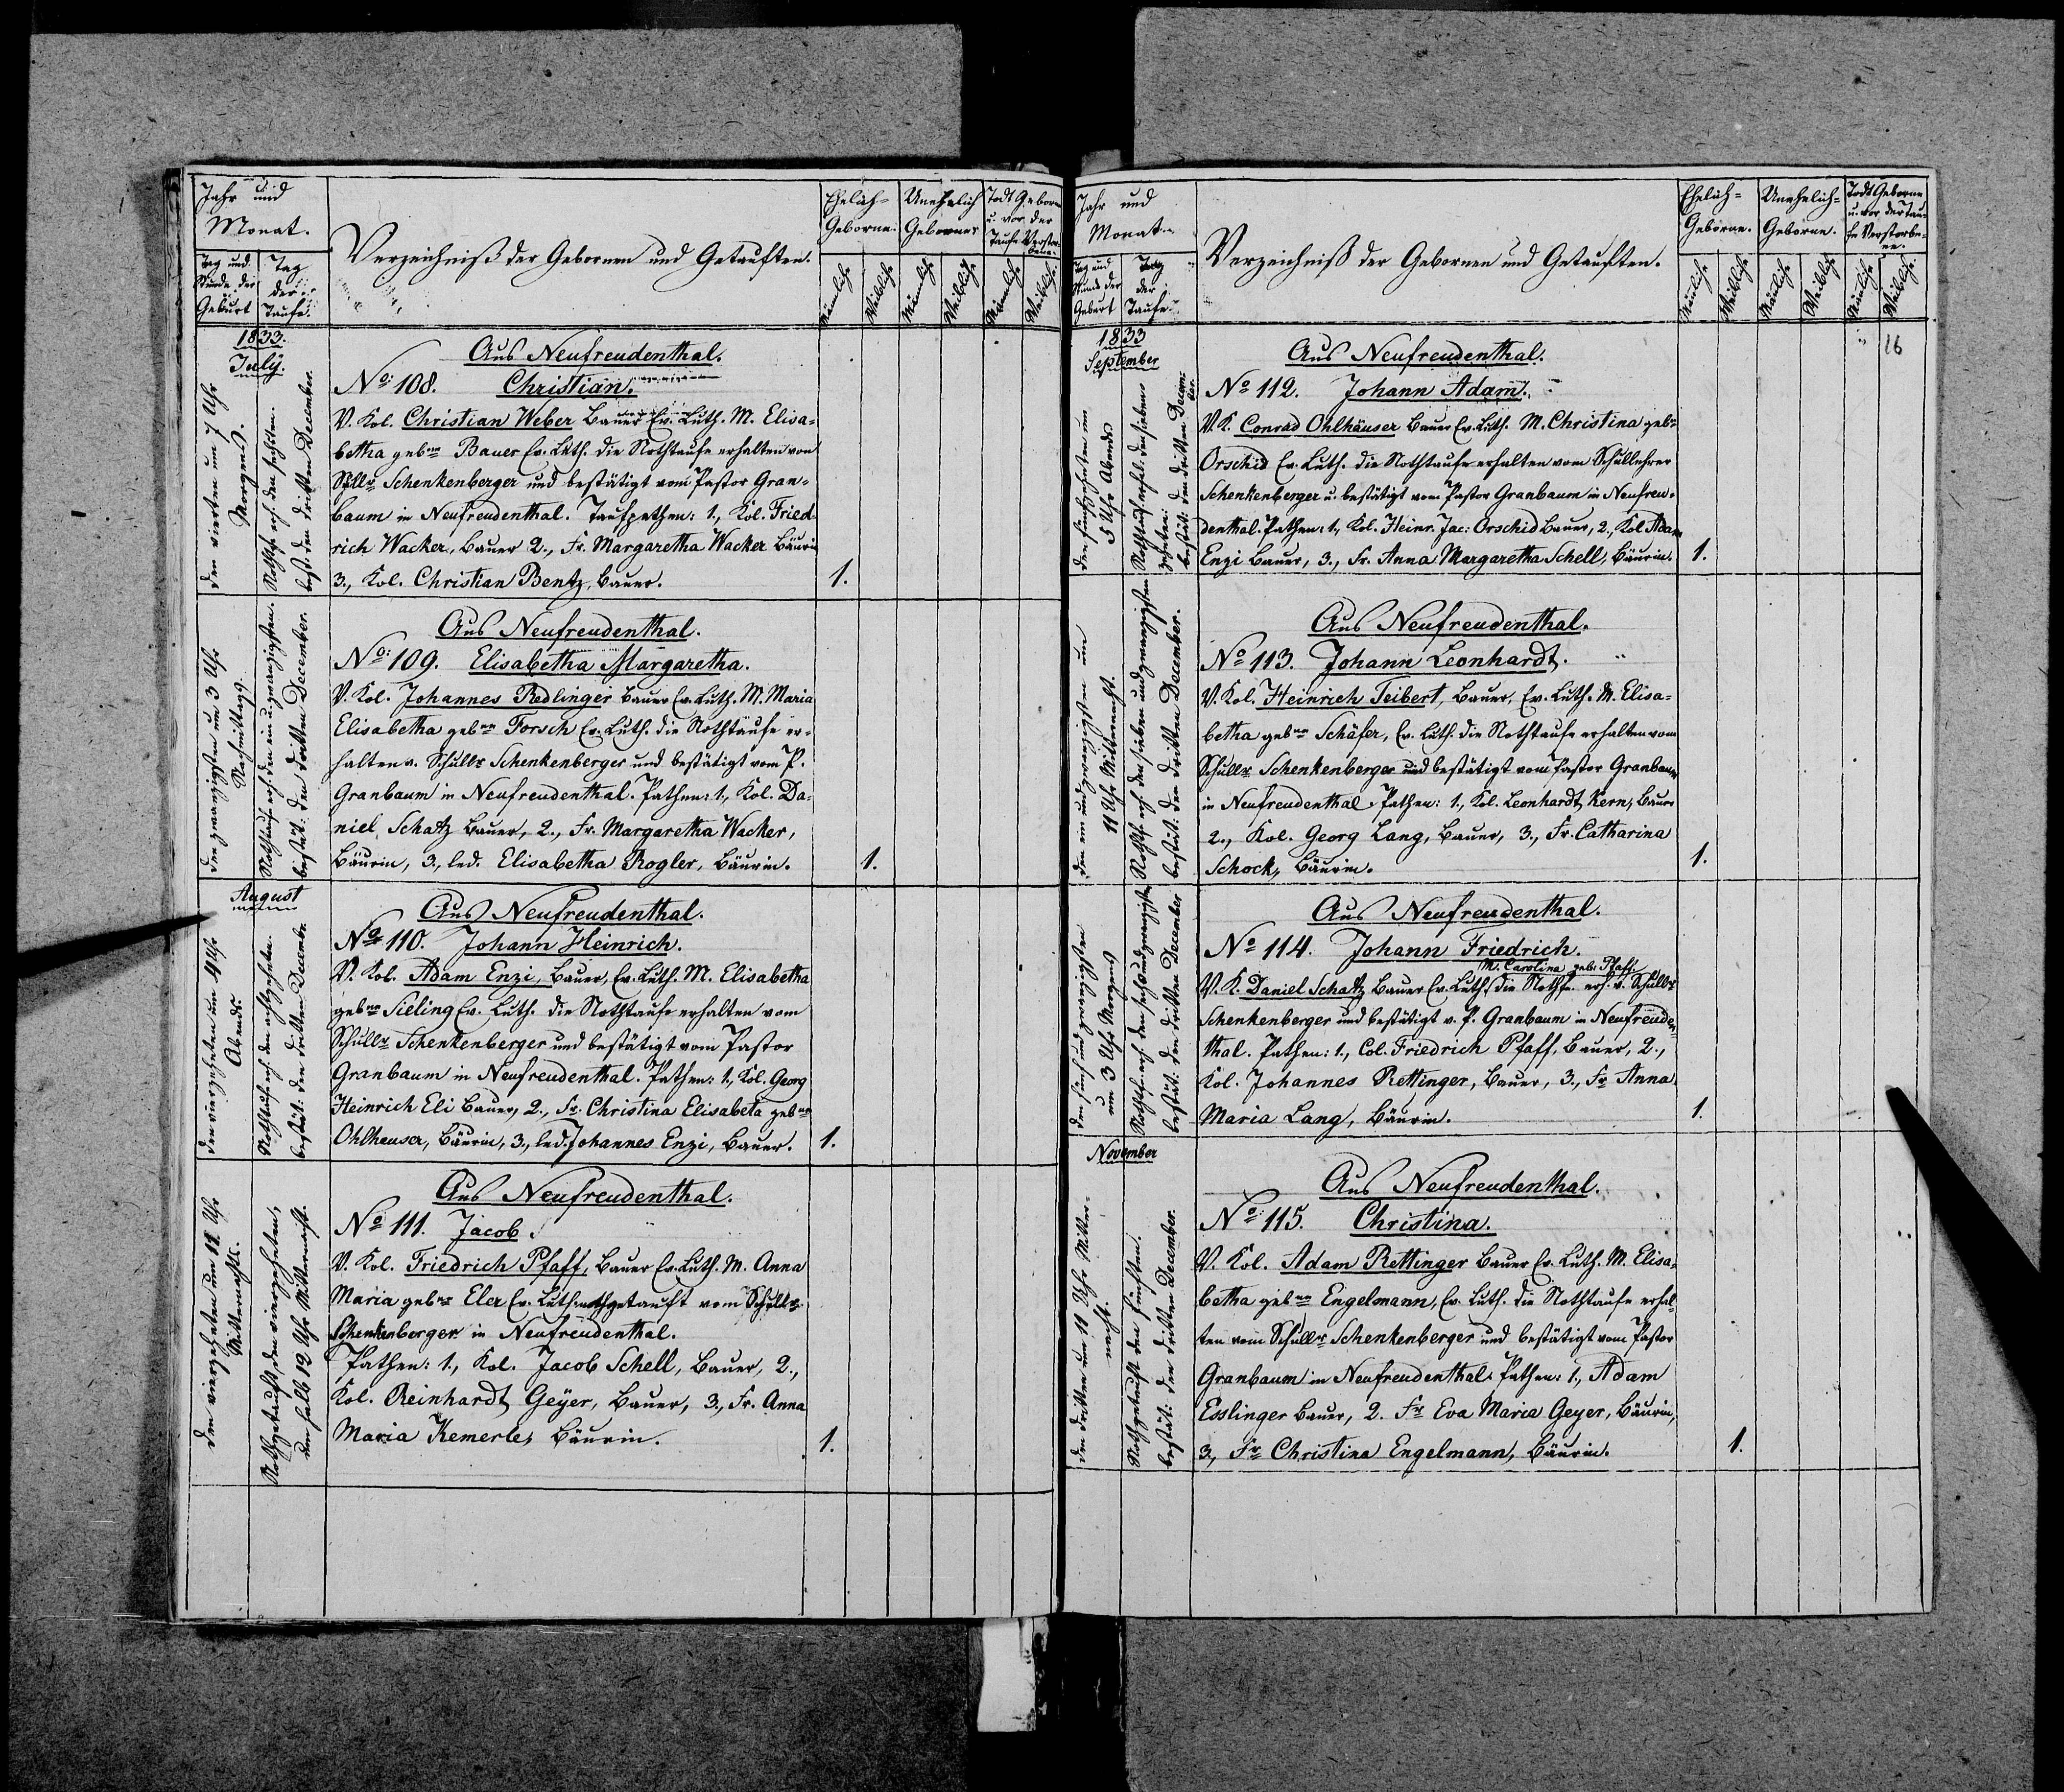 Jahr und
Monat.
Tag und
Stunde der
Geburt
Tag
der
Taufe.
Verzeichniß der Gebornen und Getauften.
Ehelich-
Geborne.
Unehelich
Geborne
Todt Geborne
u. vor der
Taufe Verstor-
bene.
Männlich.
Weiblich.
Männlich.
Weiblich.
Männlich.
Weiblich.
1833.
July.
den vierten um 7 Uhr
Morgens.
Nothtfe erh. den sechsten.
best. den dritten December.
Aus Neufreudenthal.
No: 108. Christian.
V. Kol. Christian Weber Bauer Ev. Luth. M. Elisa-
betha gebne Bauer Ev. Luth. die Nothtaufe erhalten von
Schullr Schenkenberger und bestätigt vom Pastor Gran-
baum in Neufreudenthal. Taufpathen: 1., Kol. Fried-
rich Wacker, Bauer 2., Fr. Margaretha Wacker Bäurin
3., Kol. Christian Bentz, Bauer.
1.
den zwanzigsten um 3 Uhr
Nachmittags.
Nothtauf erh. den ein u. zwanzigsten.
bestät: den dritten December.
Aus Neufreudenthal.
No: 109. Elisabetha Margaretha.
V. Kol. Johannes Redlinger Bauer Ev. Luth. M. Maria
Elisabetha gebne Forsch Ev. Luth. die Nothtaufe er-
halten v. Schullr Schenkenberger und bestätigt vom P.
Granbaum in Neufreudenthal. Pathen: 1., Kol. Da-
niel Schatz Bauer, 2., Fr. Margaretha Wacker,
Bäurin, 3., led. Elisabetha Rogler, Bäurin.
1.
August
den vierzehnten um 4 Uhr
Abends.
Nothtauf erh. den achtzehnten.
bestät: den dritten Decembr.
Aus Neufreudenthal.
No 110. Johann Heinrich.
V. Kol. Adam Enzi, Bauer, Ev. Luth. M. Elisabetha
gebne Sieling Ev. Luth. die Nothtaufe erhalten vom
Schullr Schenkenberger und bestätigt vom Pastor
Granbaum in Neufreudenthal. Pathen: 1., Kol. Georg
Heinrich Eli Bauer, 2., Fr. Christina Elisabeta gebne
Ohlheuser, Bäurin, 3., led. Johannes Enzi, Bauer.
1.
den vierzehnten um 12 Uhr
Mitternachts.
Nothgetauft, den vierzehnten,
um halb 12 Uhr Mitternacht.
Aus Neufreudenthal.
No 111. Jacob.
V. Kol. Friedrich Pfaff, Bauer Ev. Luth. M. Anna
Maria gebne Eler Ev. Luth. nothgetauft vom Schullr
Schenkenberger in Neufreudenthal.
Pathen: 1., Kol. Jacob Schell, Bauer, 2.,
Kol. Reinhardt Geyer, Bauer, 3., Fr. Anna
Maria Kemerle, Bäurin.
1.
Jahr und
Monat.
Tag und
Stunde der
Geburt
Tag
der
Taufe.
Verzeichniß der Gebornen und Getauften.
Ehelich-
Geborne.
Unehelich-
Geborne.
Todt Geborne
u. vor der Tau-
fe Verstorbe-
ne.
Männlich.
Weiblich.
Männlich.
Weiblich.
Männlich.
Weiblich.
16
1833
September
den fünfzehnten um
5 Uhr Abends
Nothtauf erhal: den sieben-
zehnten:
bestät: den dritten Decem-
ber.
Aus Neufreudenthal.
No 112. Johann Adam.
V. K. Conrad Ohlhäuser Bauer Ev. Luth. M. Christina geb-
Orschid Ev. Luth. die Nothtaufe erhalten vom Schullehrer
Schenkenberger u. bestätigt vom Pastor Granbaum in Neufreu-
denthal. Pathen: 1., Kol. Heinr. Jac: Orschid Bauer, 2., Kol. Adam
Enzi Bauer, 3., Fr. Anna Margaretha Schell, Bäurin.
1.
den ein und zwanzigsten um
11 Uhr Mitternacht.
Nothtfe erh. den sieben und zwanzigsten
bestät: den dritten December.
Aus Neufreudenthal.
No 113. Johann Leonhardt.
V. Kol. Heinrich Seibert, Bauer, Ev. Luth. M. Elisa-
betha gebne Schäfer, Ev. Luth. die Nothtaufe erhalten vom
Schullr Schenkenberger und bestätigt vom Pastor Granbaum
in Neufreudenthal. Pathen: 1., Kol. Leonhardt Kern, Bauer
2., Kol. Georg Lang, Bauer, 3., Fr. Catharina
Schock, Bäurin.
1.
den fünf und zwanzigsten
um 3 Uhr Morgens
Nothtfe erh. den sechs und zwanzigsten
bestät: den dritten December
Aus Neufreudenthal.
No 114. Johann Friedrich.
M. Carolina geb: Pfaff
V. K. Daniel Schatz Bauer Ev. Luth. die Nothfe. erh. v. Schullr
Schenkenberger und bestätigt v. P. Granbaum in Neufreuden-
thal. Pathen: 1., Col. Friedrich Pfaff, Bauer, 2.,
Kol. Johannes Rettinger, Bauer, 3., Fr Anna
Maria Lang, Bäurin.
1.
November
den dritten um 11 Uhr Mitter-
nacht.
Nothgetauft den fünften.
bestät: den dritten December.
Aus Neufreudenthal.
No: 115. Christina.
V. Kol. Adam Rettinger Bauer Ev. Luth. M. Elisa-
betha gebne Engelmann, Ev. Luth. die Nothtaufe erhal-
ten vom Schullr Schenkenberger und bestätigt vom Pastor
Granbaum in Neufreudenthal. Pathen: 1., Adam
Esslinger Bauer, 2. Fr Eva Maria Geyer, Bäurin,
3., Fr Christina Engelmann, Bäurin.
1.